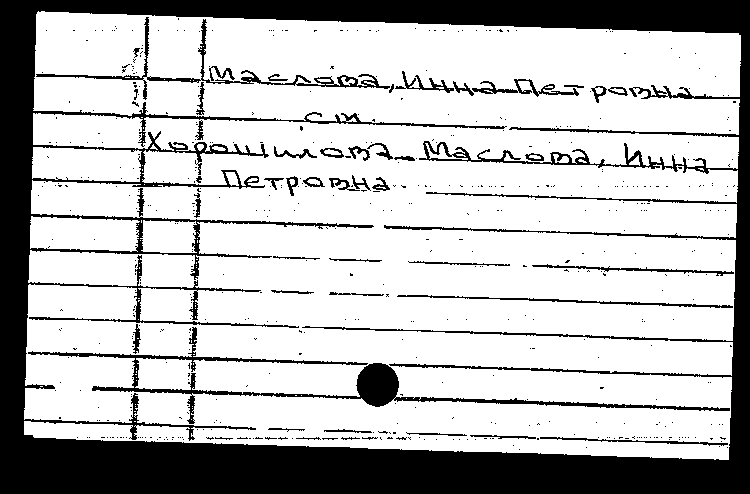 Маслова, Инна Петровна
см.
Хорошилова-Маслова, Инна
Петровна